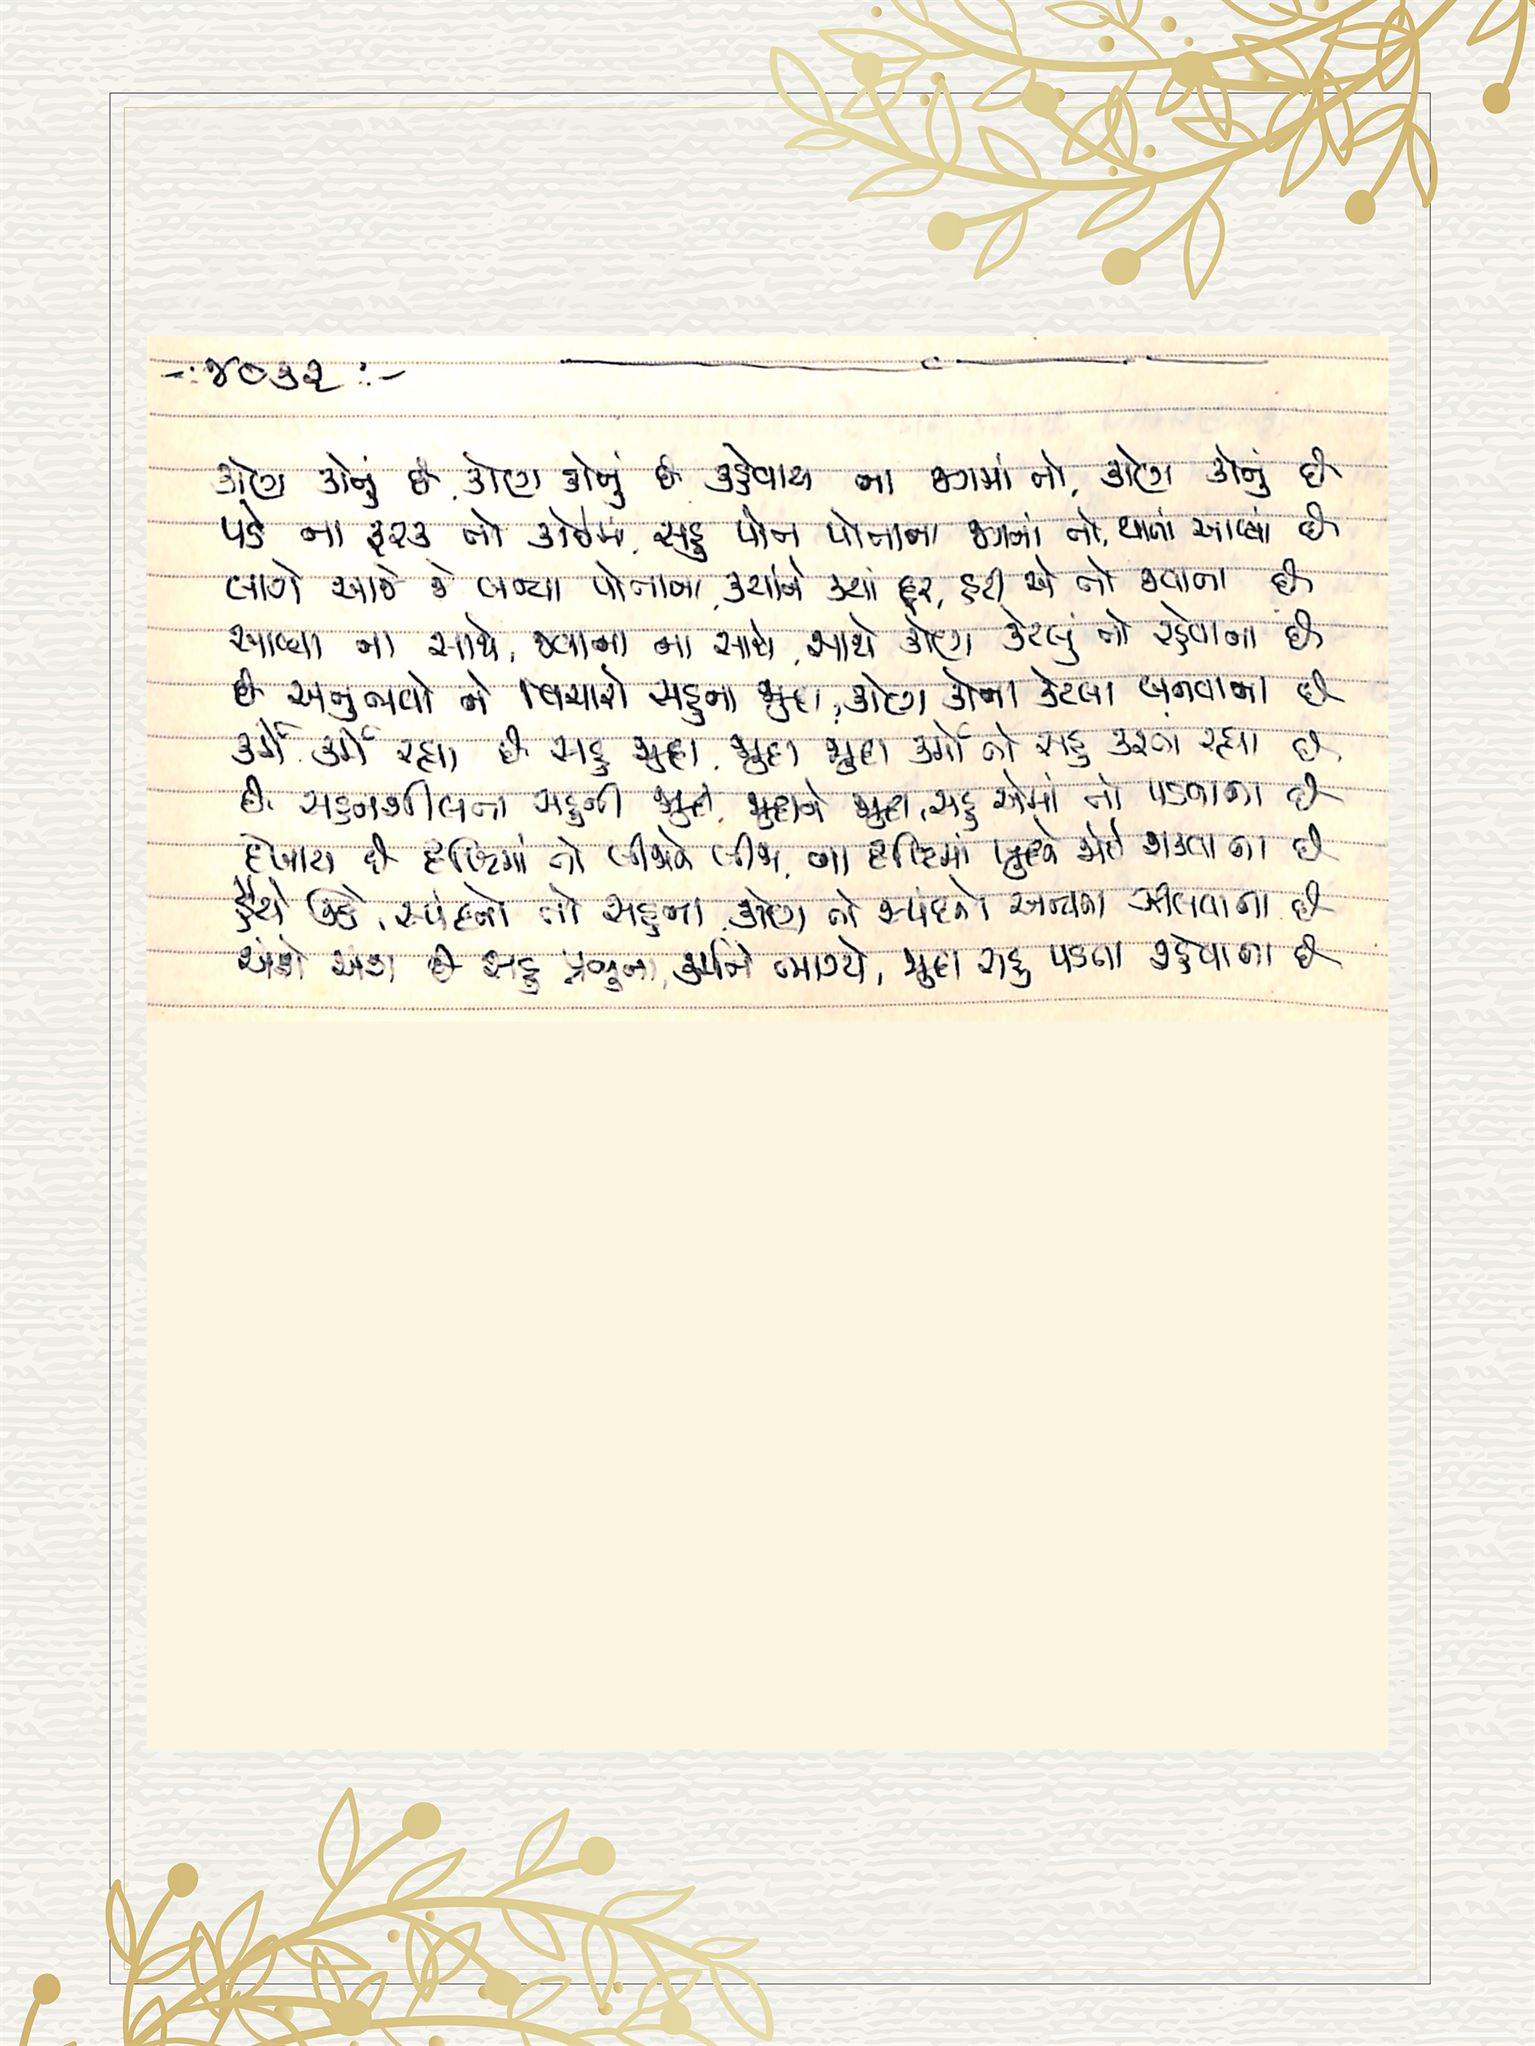 -: ४०३२ :-
કોણ કોનું છે, કોણ કોનું છે કહેવાય ના જગમાં તો, કોણ કોનું છે
પડે ના ફરક તો કોઈમાં, સહુ પોત પોતાના જગમાં તો, થાતાં આવ્યાં છે
લાગે આજે જે બન્યા પોતાના, ક્યારે ક્યાં દૂર, હટી એ તો જવાના છે
આવ્યા ના સાથે, જવાના ના સાથે, સાથે કોણ કેટલું તો રહેવાના છે
છે અનુભવો ને વિચારો સહુના જુદા, કોણ કોના કેટલા બનવાના છે
કર્મે કર્મે રહ્યા છે સહુ જુદા, જુદા જુદા કર્મો તો સહુ કરતા રહ્યા છે
છે સહનશીલતા સહુની જુદી, જુદાને જુદા, સહુ એમાં તો પડવાના છે
દેખાય છે દૃષ્ટિમાં તો બીજાને બીજા, ના દૃષ્ટિમાં જુદુ જોઈ શકવાના છે
હૈયે ઉઠે, સ્પંદનો તો સહુના, કોણ તો સ્પંદનો અન્યના ઝીલવાના છે
અંશે અંશ છે સહુ પ્રભુના, કર્મને ભાગ્યે, જુદા સહુ પડતા રહેવાના છે